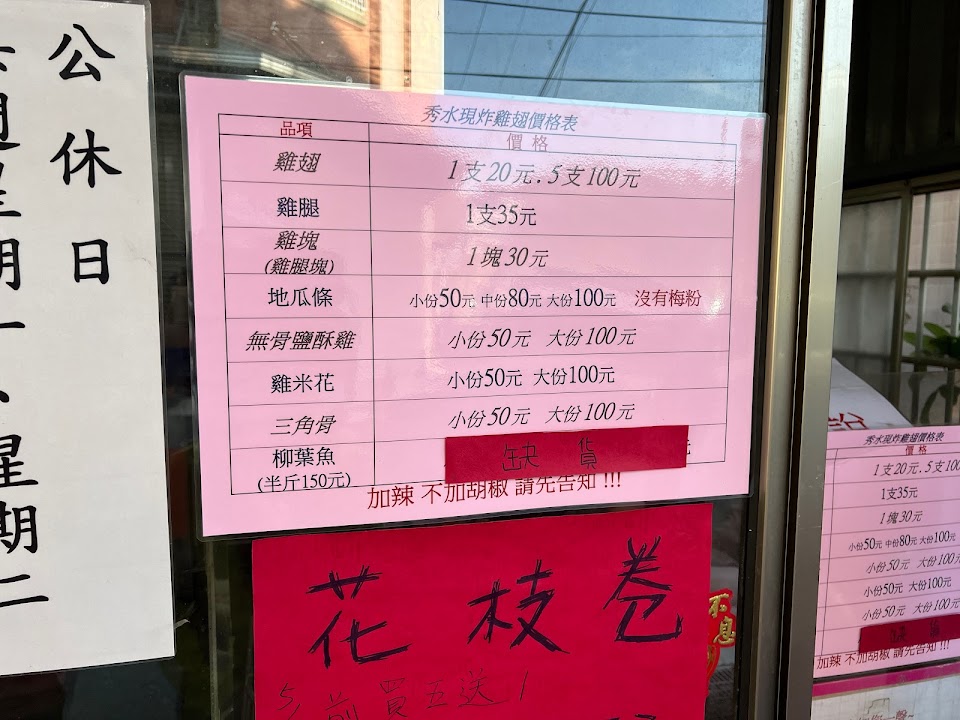 公休日
星期一、星期二
秀水現炸雞翅價格表
品項 價格
雞翅 1支20元.5支100元
雞腿 1支35元
雞塊 1塊30元
(雞腿塊)
地瓜條 小份50元 中份80元 大份100元 沒有梅粉
無骨鹽酥雞 小份50元 大份100元
雞米花 小份50元 大份100元
三角骨 小份50元 大份100元
柳葉魚 缺貨
(半斤150元)
加辣 不加胡椒 請先告知 !!!
花枝卷
前買五送1
不息
秀水現炸雞翅價格表
價格
1支20元.5支100
1支35元
1塊30元
小份50元 中份80元 大份100元
小份50元 大份100元
小份50元 大份100元
小份50元 大份100元
缺貨
加辣 不加胡椒 請先告知 !!!